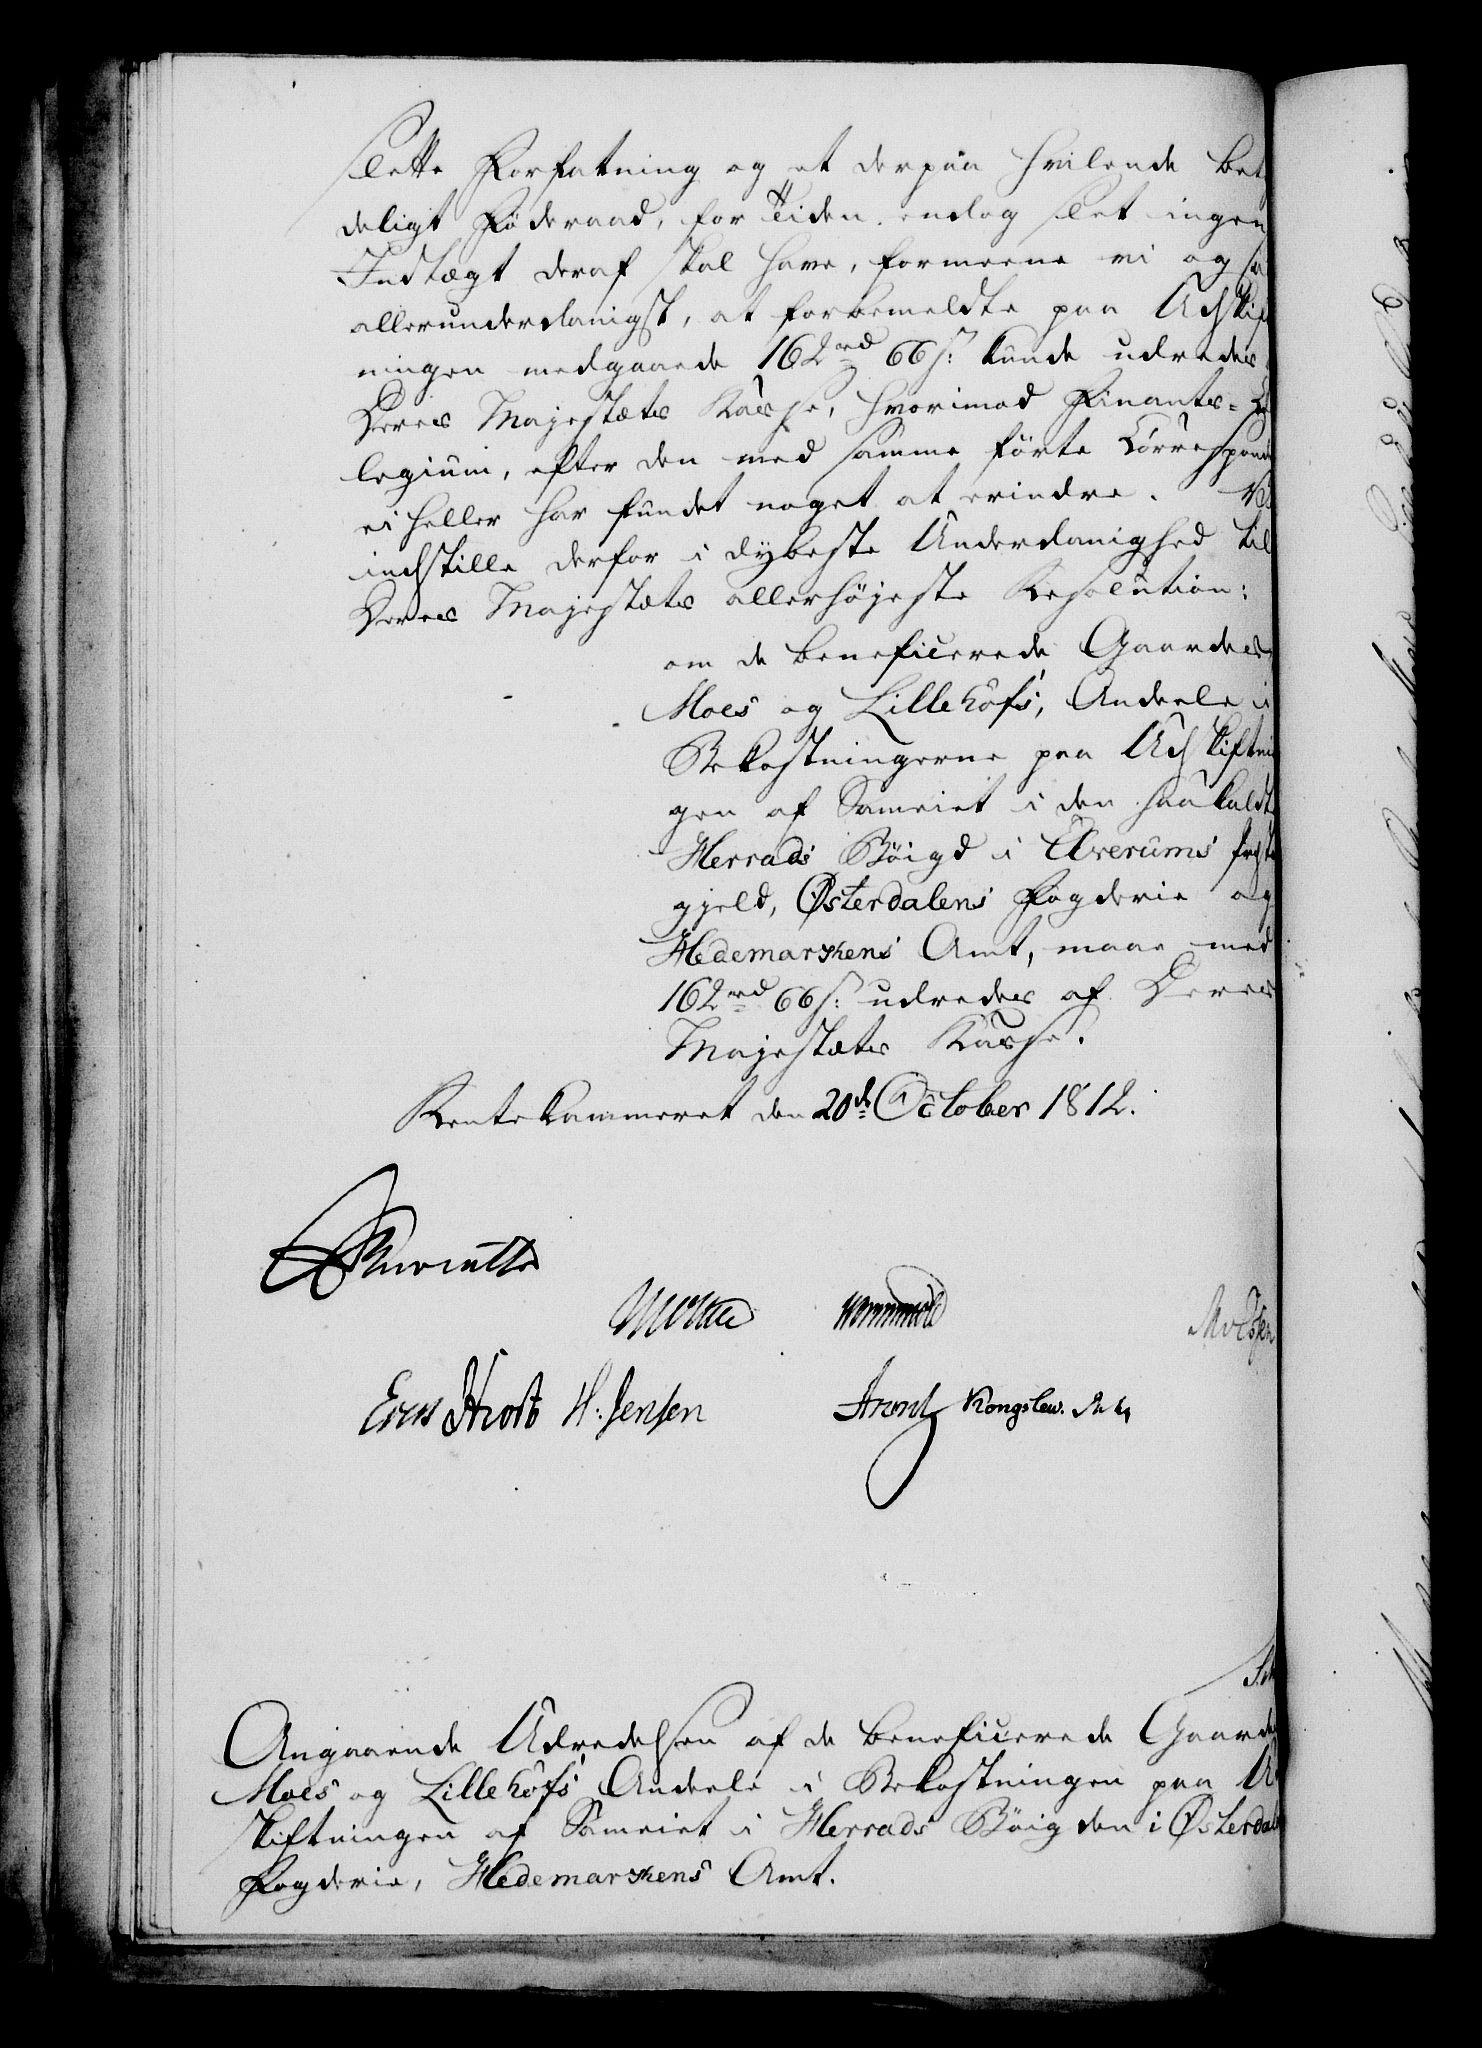 slette Forfatning og et derpaa hvilende bet
deligt Föderaad, for Tiden endog slet ingen
Indtægt deraf skal have, formeene vi ogsa
allerunderdanigst, at forbemeldte paa Udskift
ningen medgaaede 162 rd 66 s: kunde udredes
Deres Majestæts Kasse, hvorimod Finants=Co
legium, efter den med samme förte Correspond
ei heller har fundet noget at erindre. Vi
indstille derfor i dybeste Underdanighed til
Deres Majestæts allerhöjeste Resolution:
om de beneficerede Gaardes
Moes og Lillehofs, Andeele i
Bekostningerne paa Udskiftni
gen af Sameiet i den saakaldte
Herrads Böigd i Elverums Præste
gjeld, Østerdalens Fogderie og
Hedemarkens Amt, maae med
162 rd 66 s: udredes af Deres
Majestæts Kasse.
Rentekammeret den 20de October 1812.
Moltke Wormskiold
Hvost H: Jensen Arent Kongslew.
Angaaende Udredelsen af de beneficerede Gaarde
Moes og Lillehofs Andeele i Bekostningen paa U
skiftningen af Sameiet i Herrads Böigden i Østerdal
Fogderie, Hedemarkens Amt.